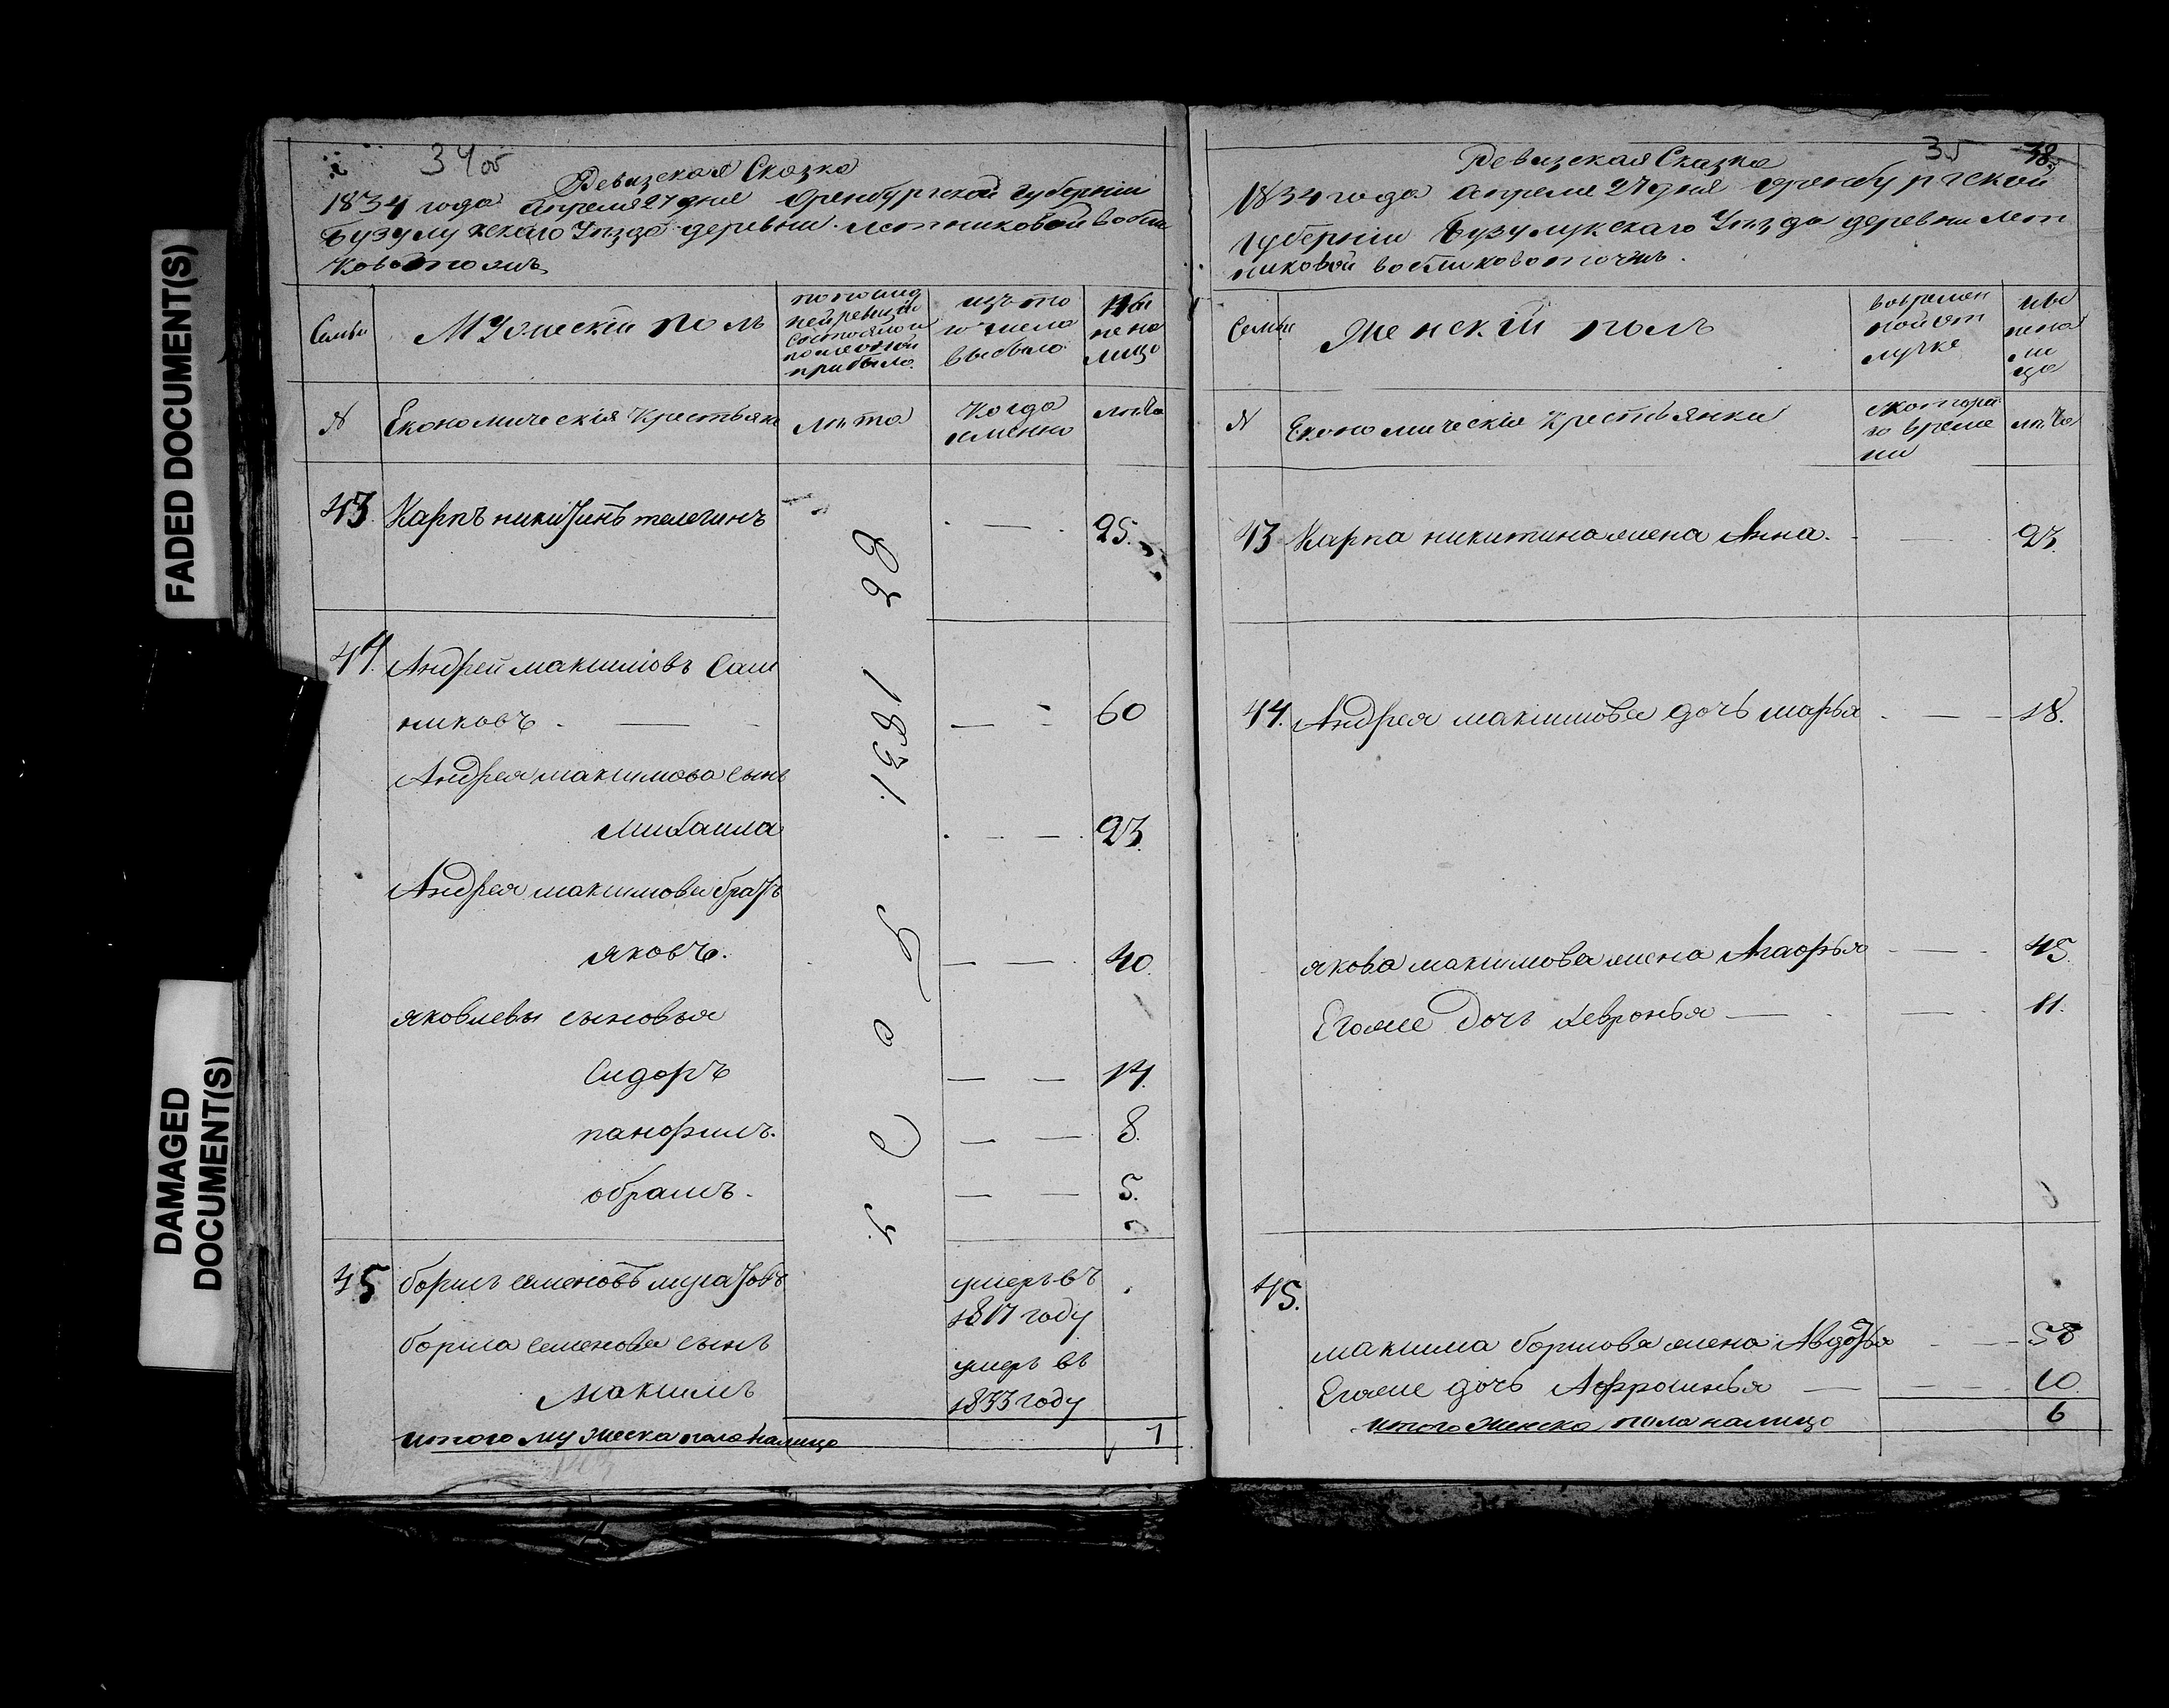 FADED DOCUMENT(S)
DAMAGED
DOCUMENT(S)
34 об
Ревизская Сказка
1834 года апреля 27 дня Оренбургской Губернии
Бузулукскаго Уезда деревни
Семьи
Мужескій полъ
по послед
ней ревизіи
состояло и
после оной
прибыло.
изъ то
го числа
выбыло
Ны
не на
лицо
N
Економическія Крестьяне
лѣта
Когда
именно
лѣта
43 Карпъ никитинъ телегинъ
25.
44. Андрей максимовъ Саш
никовъ
60
Андрея максимова сынъ
михаила
23
Андрея максимова братъ
яковъ.
40.
яковлевы сыновья
Сидоръ
14.
панфилъ.
8.
обрамъ.
5.
1831.
45 борисъ семеновъ
умеръ въ
1817 году
бориса семенова сынъ
Максимъ
умеръ въ
1833 году
итого мужеска пола налицо
7
35
38
Ревизская Сказка
1834 года апреля 27 дня Оренбургской
губерніи Бузулукскаго Уезда деревни
Семьи
Женскій полъ
во времен
ной от
лучке
ны
не на
ли
цо
N
Економическіе Крестьянки
с котора
го време
ни
лѣта
43 Карпа никитина жена Анна.
23.
44. Андрея максимова дочь марья
18.
якова максимова жена Агафья
45.
Егоже Дочь Февронья
11.
45.
максима борисова жена Авдотья
58
Егоже дочь Афросинья
10.
итого женска пола налицо
6